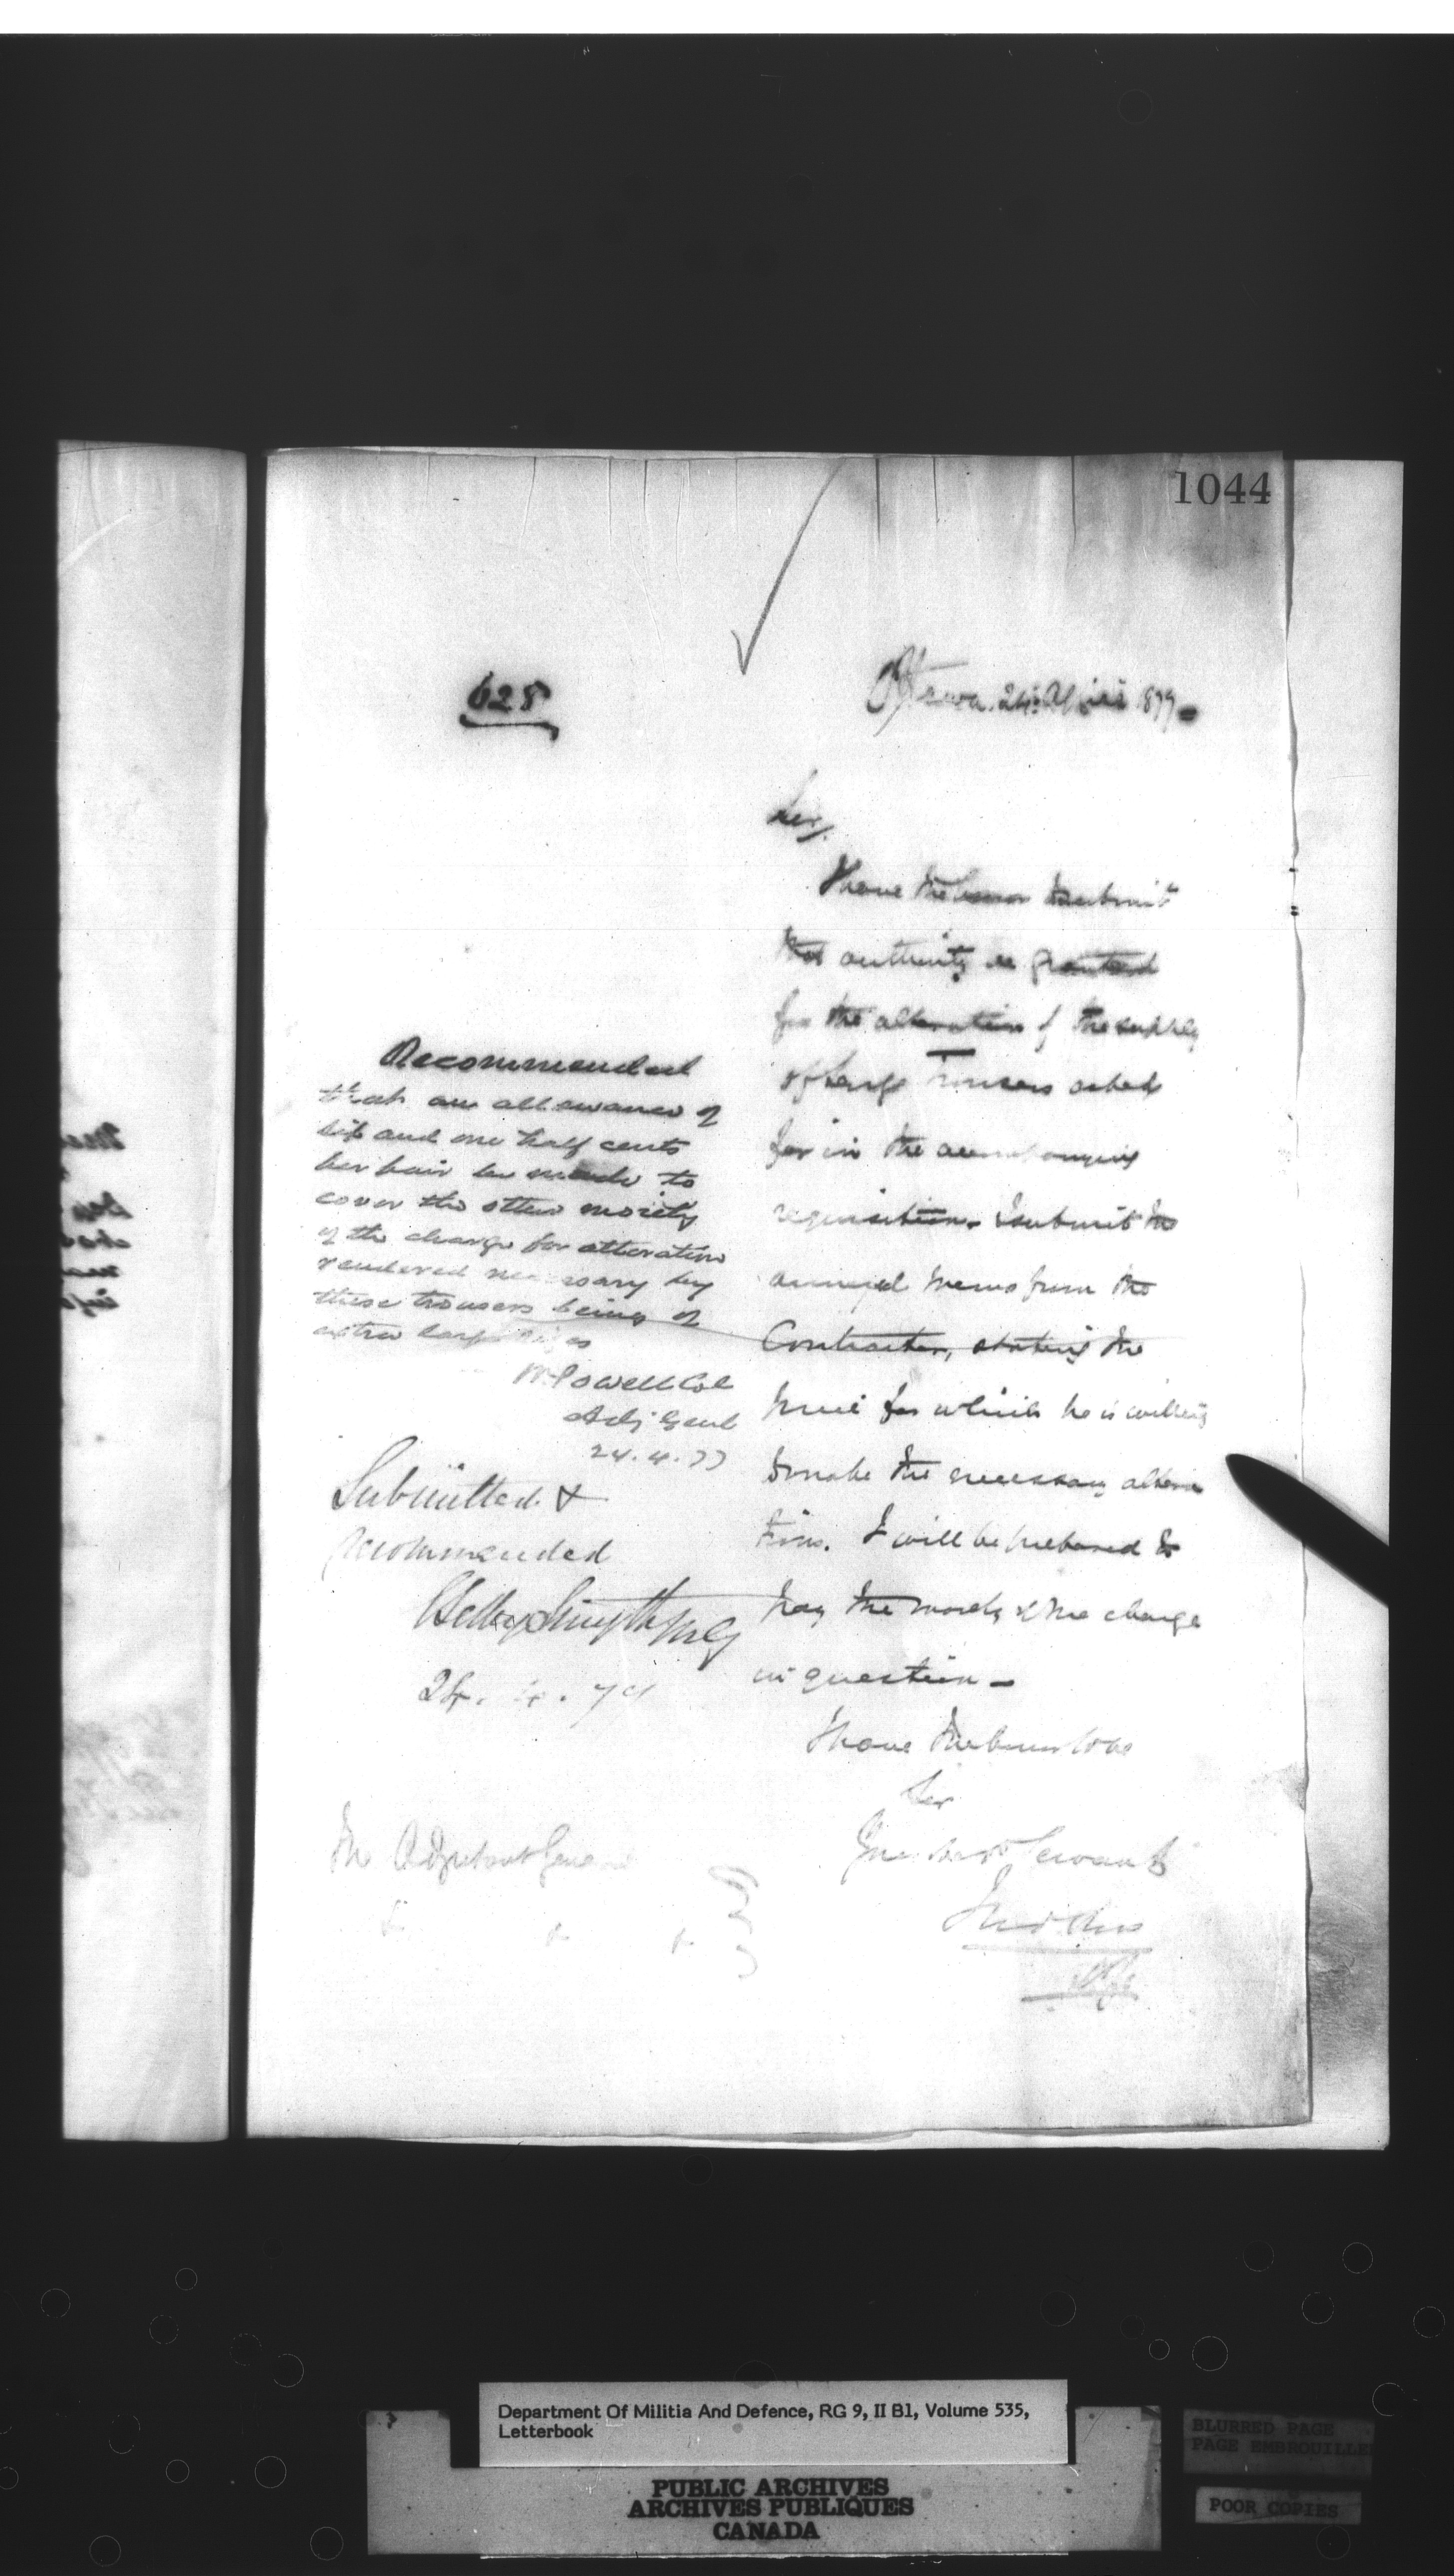 1044
628
Ottawa. 24th April 1879
Sir,
I have the honor to submit
that authority be granted
for the alteration of the supply
of Serge Trousers asked
for in the accompanying
requisition. I submit the
annexed memo from the
Contractor, stating the
price for which he is willing
to make the necessary altera
tions. I will be prepared to
pay the moiety of the charge
in question -
I have the honor to be
Sir
Your obedt Servant
Recommended
that an allowance of
six and one half cents
per pair be made to
cover the other moiety
of the charge for alteration
rendered necessary by
these trousers being of
extra large sizes
W. Powell Col
Adj Genl
24.4.79
Submitted &
recommended
Selby Smyth MG
24. 4. 79
The Adjutant General
Department Of Militia And Defence, RG 9, II B1, Volume 535,
Letterbook
PUBLIC ARCHIVES
ARCHIVES PUBLIQUES
CANADA
BLURRED PAGE
PAGE EMBROUILLEE
POOR COPIES